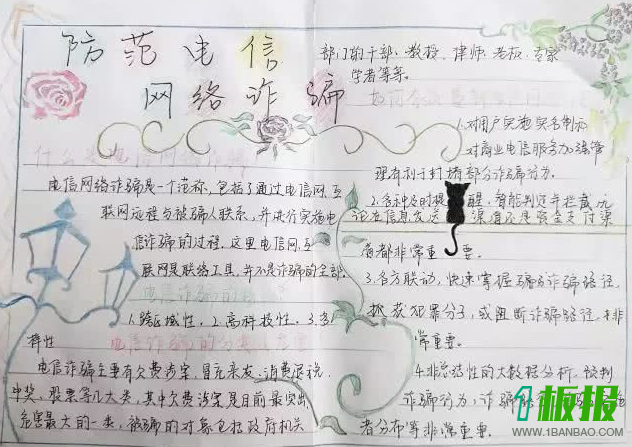 防范电信
网络诈骗
什么是电信网络诈骗
电信网络诈骗是一个范称,包括了通过电信网、互
联网远程与被骗人联系,并进行实施电
信诈骗的过程。这里电信网、互
联网是联络工具,并不是诈骗的全部。
电信诈骗的
1.跨区域性。2.高科技性。3.多
样性
电信诈骗的分类
电信诈骗主要有欠费涉案、冒充亲友、消费退税、
中奖、股票等几大类,其中欠费涉案是目前最突出、
危害最大的一类,被骗的对象包括政府机关
部门的干部、教授、律师、老板、专家
学者等等。
1.对用户实施实名制
对商业电信服务加强管
理有利于封堵部分诈骗行为。
2.各种及时提醒,智能判定并拦截,无
论在信息发送渠道还是资金支付渠
道都非常重要。
3.各方联动,快速掌握骗及诈骗路径,
抓获犯罪分子,或阻断诈骗路径,非
常重要。
4.非总结性的大数据分析,预判
诈骗行为,诈骗
者分布等非常重要。
1板报
WWW.1BANBAO.COM